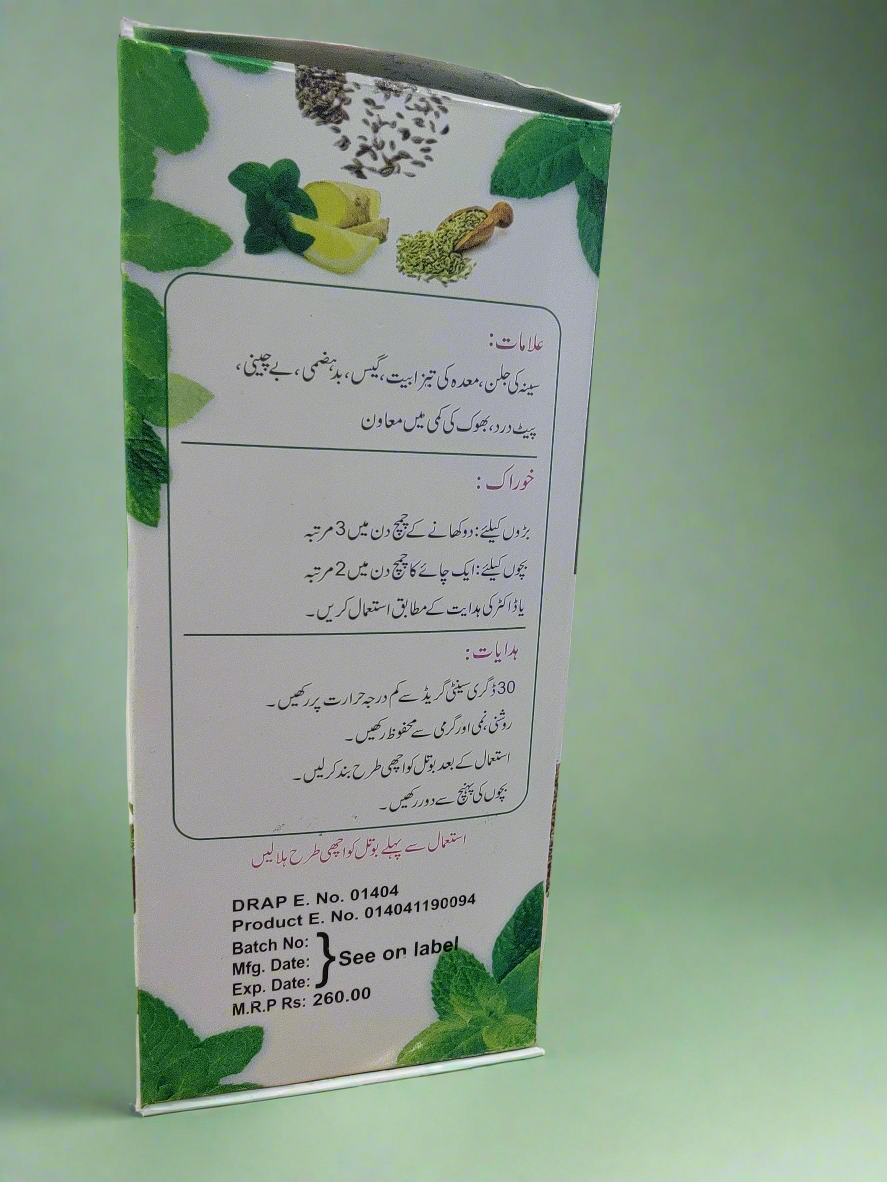 علامات:
سینہ کی جلن، معدہ کی تیزابیت، گیس، بدہضمی، بے چینی،
پیٹ درد، بھوک کی کمی میں معاون
خوراک:
بڑوں کیلئے: دو کھانے کے چمچ دن میں 3 مرتبہ
بچوں کیلئے: ایک چائے کا چمچ دن میں 2 مرتبہ
یا ڈاکٹر کی ہدایت کے مطابق استعمال کریں۔
ہدایات:
30 ڈگری سینٹی گریڈ سے کم درجہ حرارت پر رکھیں۔
روشنی، نمی اور گرمی سے محفوظ رکھیں۔
استعمال کے بعد بوتل کو اچھی طرح بند کر لیں۔
بچوں کی پہنچ سے دور رکھیں۔
استعمال سے پہلے بوتل کو اچھی طرح ہلا لیں
DRAP E. No. 01404
Product E. No. 014041190094
Batch No:
Mfg. Date: } See on label
Exp. Date:
M.R.P Rs: 260.00